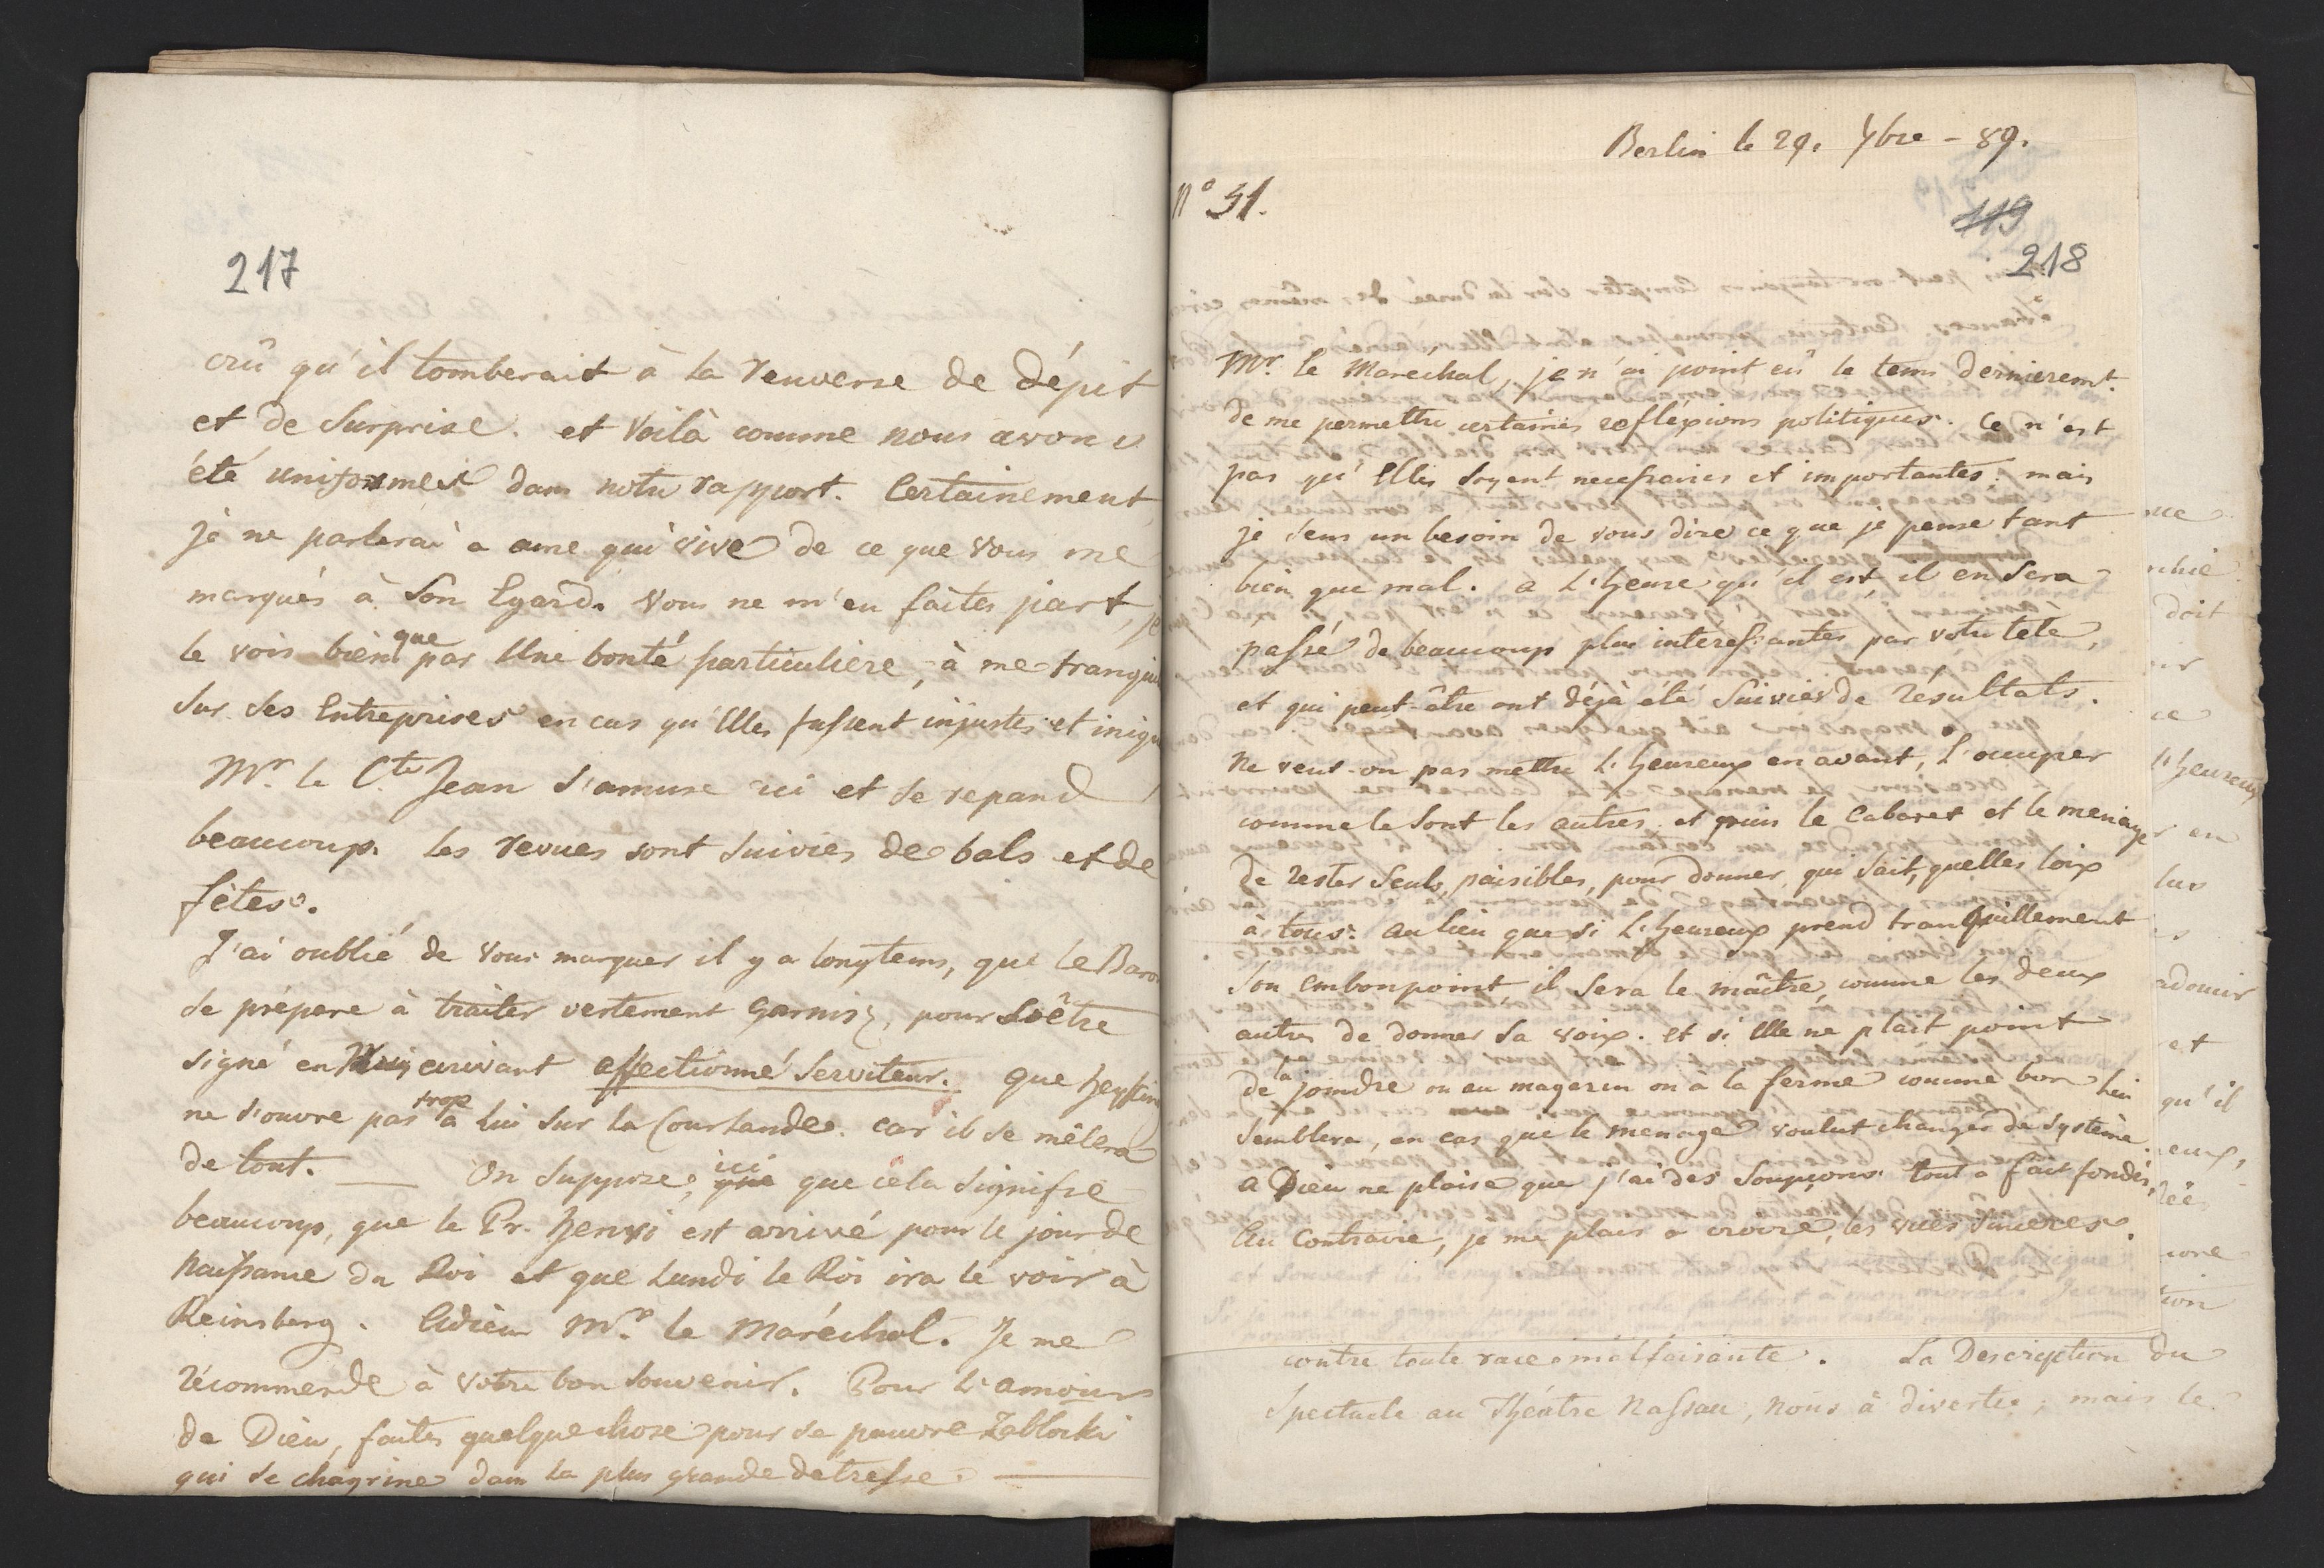 217
crû qu'il tomberait à la renverse de dépit
et de Surprise. et Voilà comme nous avons
été uniformes dans notre rapport. Certainement
je ne parlerai a ame qui vive de ce que Vous me
marqués à Son Egard. Vous ne m'en faites part, je
le vois bien que par Une bonté particulière, à me tranqui
Sur Ses Entreprises en cas qu'Elles fussent injustes et iniqu
Mr. le Cte Jean s'amuse ici et se repand
beaucoup. les revues sont suivies de bals et de
fêtes.
J'ai oublié de Vous marquer il y a longtems, que le Baron
se prépare à traiter vertement pour être
signé en écrivant affectionné Serviteur. que Heyking
ne s'ouvre pas trop à lui sur la Courlande. car il se mêlera
de tout. — On Suppose, ici que cela signifie
beaucoup, que le Pr. Henri est arrivé pour le jour de
Naissance du Roi et que Lundi le Roi ira le voir à
Reinsberg. Adieu Mr. le Maréchal. Je me
récommende à Votre bon Souvenir. Pour l'amour
de Dieu, faites quelque chose pour ce pauvre Zablocki
qui se chagrine dans la plus grande detresse —
Berlin le 29. 7bre - 89.
No 31.
119
218
Mr. le Marechal, je n'ai point eû le tems dernieremt.
de me permettre certaines refléxions politiques. Ce n'est
pas qu'Elles soyent necessaires et importantes: mais
je sens un besoin de vous dire ce que je pense tant
bien que mal. a l'heure qu'il est, il en Sera
passé de beaucoup plus interessantes par votre tête,
et qui peut-être ont déjà été suivies de résultats.
Ne veut-on pas mettre l'heureux en avant, l'occuper
comme le sont les autres, et puis le Cabaret et le menage
de rester seuls, paisibles, pour donner, qui sait, quelles loix
à tous: au lieu que si l'heureux prend tranquillement
Son embonpoint, il sera le maître, comme les deux
autres de donner sa voix. et si Elle ne plait point
de la joindre ou au magazin ou à la ferme comme bon lui
semblera, en cas que le menage voulut changer de Systême.
a Dieu ne plaise que j'ai des Soupçons tout a fait fondés,
Au Contraire, je me plais a croire, les vues sinceres.
contre toute race malfaisante. La Description du
Spectacle au Théatre Nassau, nous à divertie; mais le
doit
l'heureux
et
qu'il